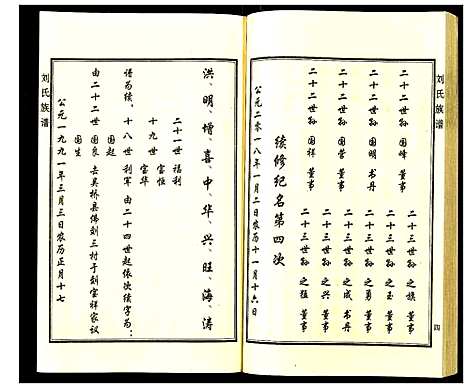 刘氏族谱
二十二世孙 国峰 董事
二十二世孙 国明 书丹
二十二世孙 国营 董事
二十二世孙 国祥 董事
二十三世孙 之族 董事
二十三世孙 之玉 董事
二十三世孙 之勇 董事
二十三世孙 之成 书丹
二十三世孙 之兴 董事
二十三世孙 之猛 董事
续修纪名第四次
公元二零一八年一月二日农历十一月十六日
四
洪、明、增、喜、中、华、兴、旺、海、涛
二十一世 福利
十九世 宝恒
宝华
谱为续。十八世 利军 由二十四世起依次续字为:
国起
由二十二世 国良 去吴桥县佛刘三村于刘宝祥家议
国生
公元一九九一年三月三日农历正月十七
刘氏族谱